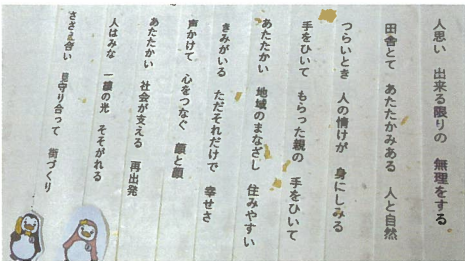 人思い 出来る限りの 無理をする
田舎とて あたたかみある 人と自然
つらいとき 人の情けが 身にしみる
手をひいて もらった親の 手をひいて
あたたかい 地域のまなざし 住みやすい
きみがいる ただそれだけで 幸せさ
声かけて 心をつなぐ 顔と顔
あたたかい 社会が支える 再出発
人はみな 一顔の光 そそがれる
ささえ合い 見守り合って 街づくり